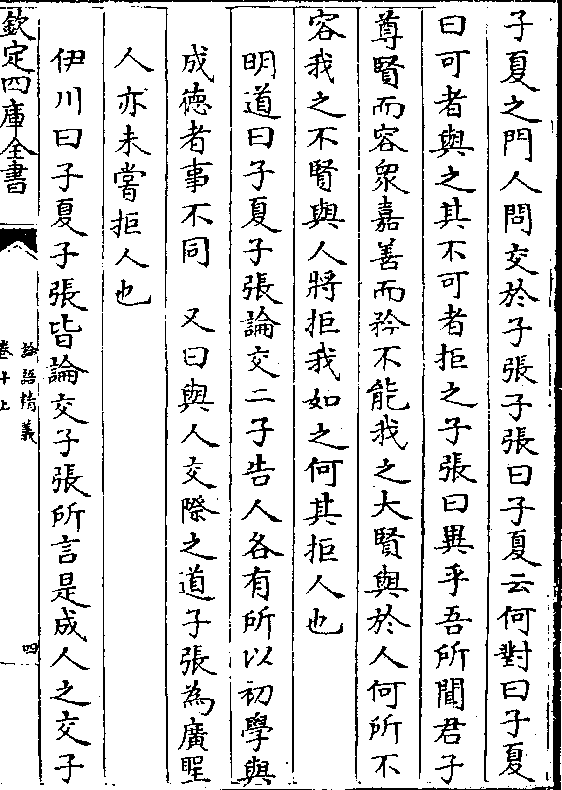 子夏之門人問交於子張子張曰子夏云何對曰子夏
曰可者與之其不可者拒之子張曰異乎吾所聞君子
尊賢而容衆嘉善而矜不能我之大賢與於人何所不
容我之不賢與人將拒我如之何其拒人也
明道曰子夏子張論交二子告人各有所以初學與
成德者事不同　又曰與人交際之道子張為廣聖
人亦未嘗拒人也
伊川曰子夏子張皆論交子張所言是成人之交子
欽定四庫全書
論語精義
卷十上
四